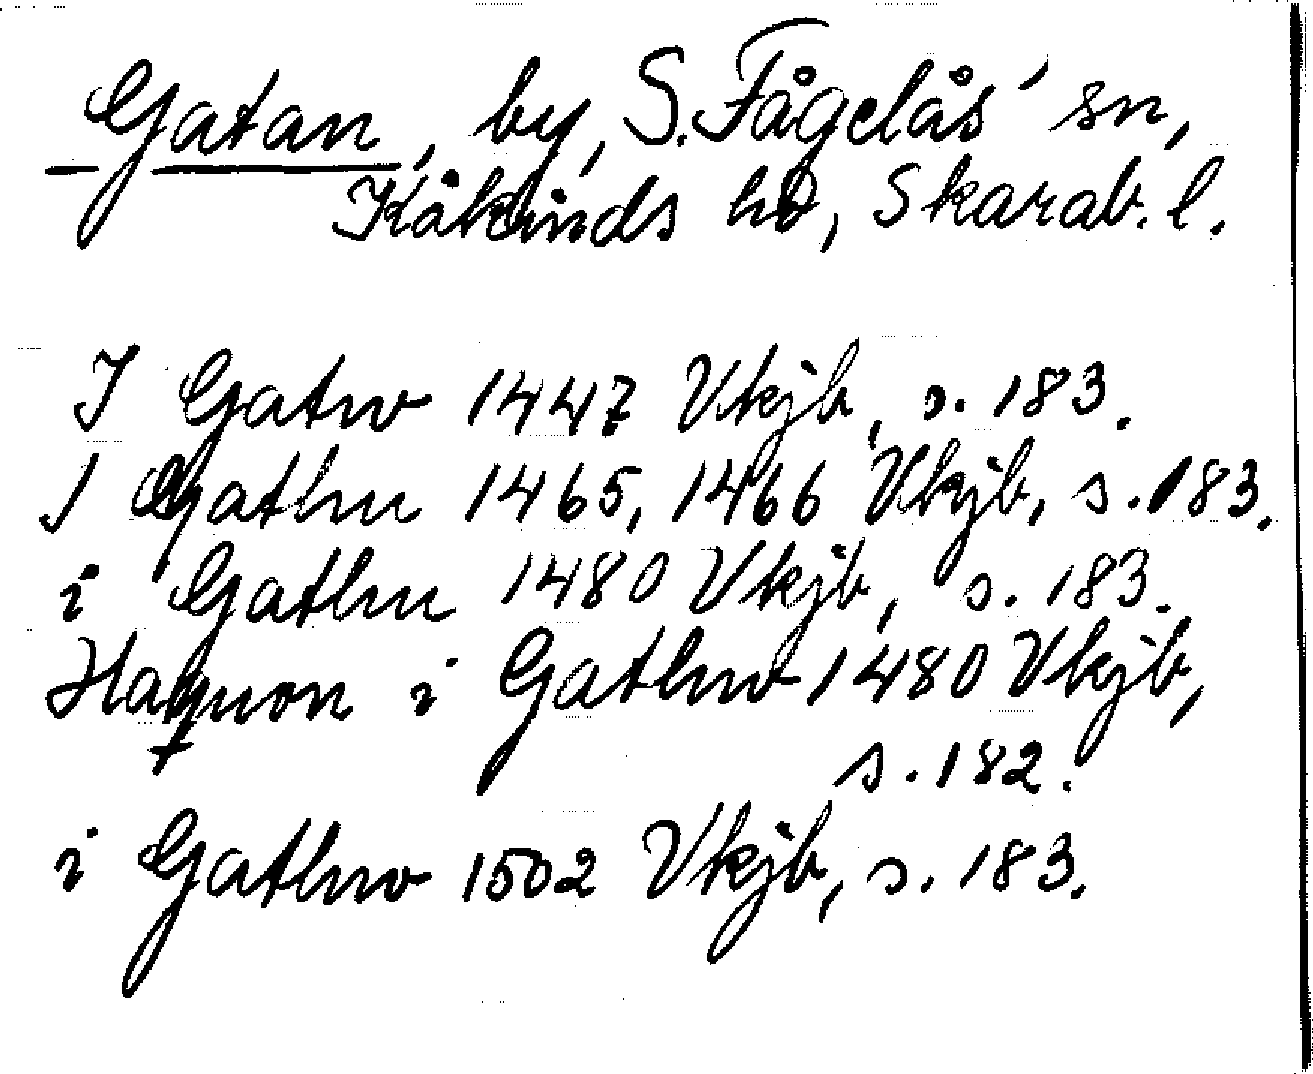 Gatan, by, S. Fågelås' sn,
Kåkinds hd, Skarab. l.
I Gatw 1447 Vkjb, s. 183.
I Gathu 1465, 1466 Vkjb, s. 183.
i Gathu 1480 Vkjb, s. 183.
Haquon i Gathw 1480 Vkjb,
s. 182.
i Gathw 1502 Vkjb, s. 183.